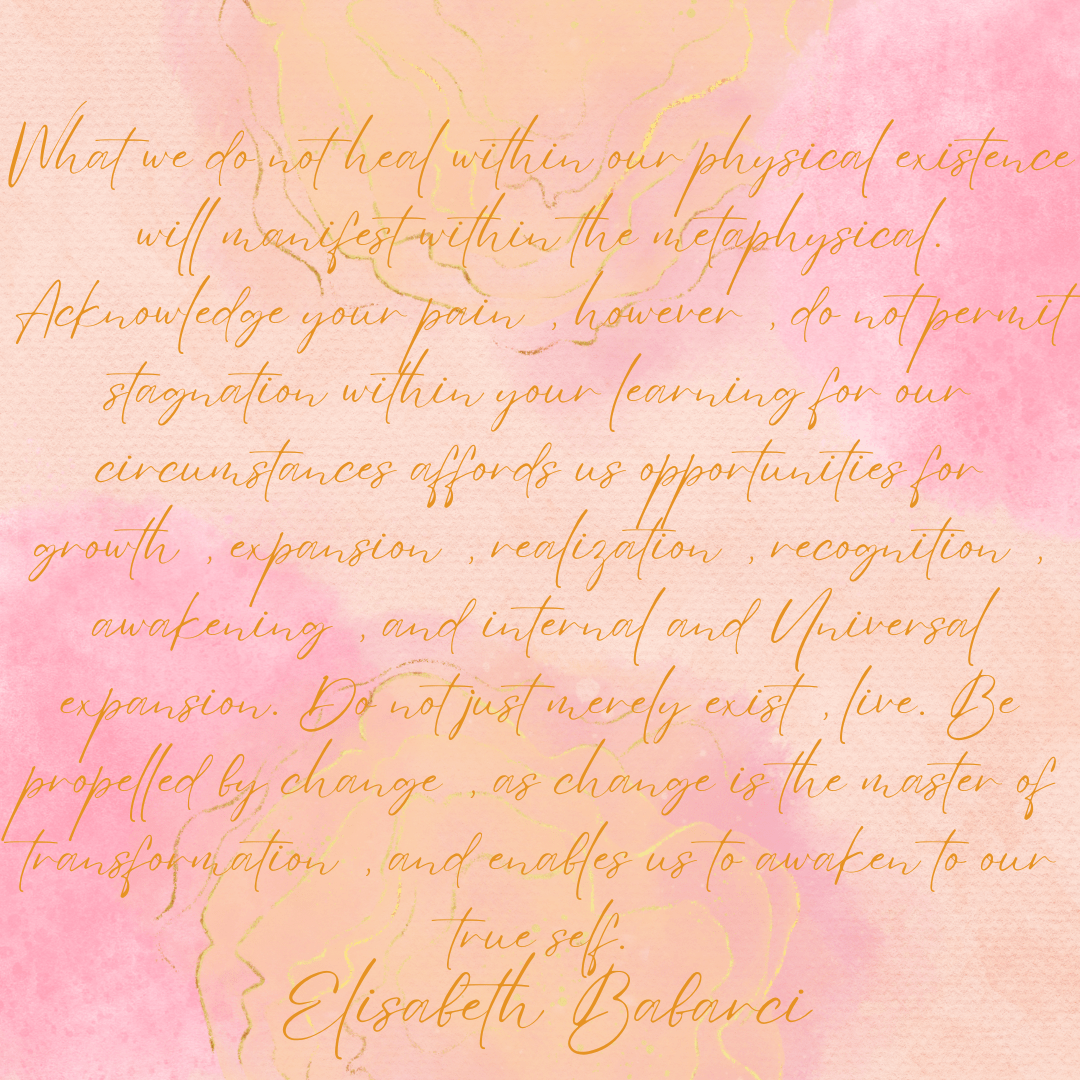 What we do not heal within our physical existence
will manifest within the metaphysical.
Acknowledge your pain , however , do not permit
stagnation within your learning for our
circumstances affords us opportunities for
growth , expansion , realization , recognition ,
awakening , and internal and Universal
expansion. Do not just merely exist , live. Be
propelled by change , as change is the master of
transformation , and enables us to awaken to our
true self.
Elisabeth Babarci